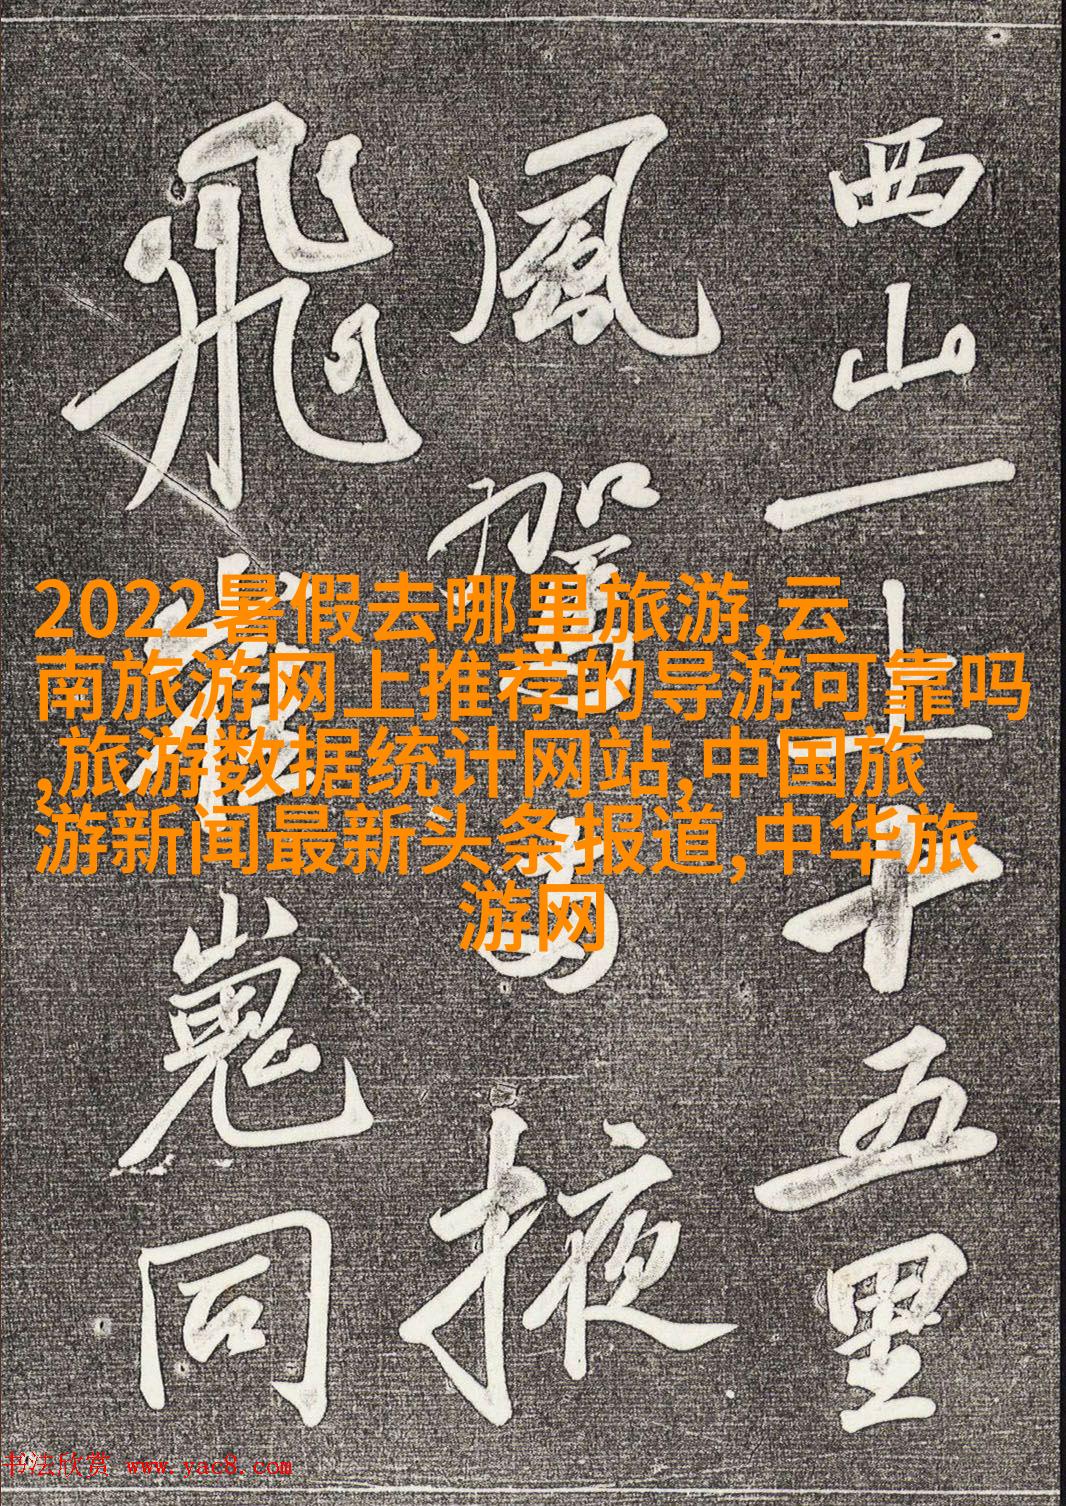 西山一上十五里
風駕掖
飛崔嵬同
2022暑假去哪里旅游,云
南旅游网上推荐的导游可靠吗
,旅游数据统计网站,中国旅
游新闻最新头条报道,中华旅
游网
书法欣赏 www.yac8.com